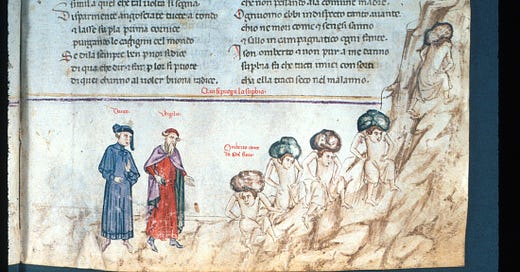 simila quel che tal volta si sogna
Disparmente angosciate tucte a tondo
e lasse su p la prima cornice
purgando le caligini del mondo
Se di la sempre ben p noi si dice
di qua che dir e far p lor si puote
di quei channo al voler buona radice
che non pensando ala comune madre
Ogniuomo ebbi in dispecto tanto avante
chio ne mori come i senesi sanno
e sallo in campagnatico ogni fante
Ison omberto e non pur a me danno
supbia fe che tucti i miei
che ella seco nel malanno
Qui si purga la supbia
Dante
Virgilio
Omberto conte
fiore